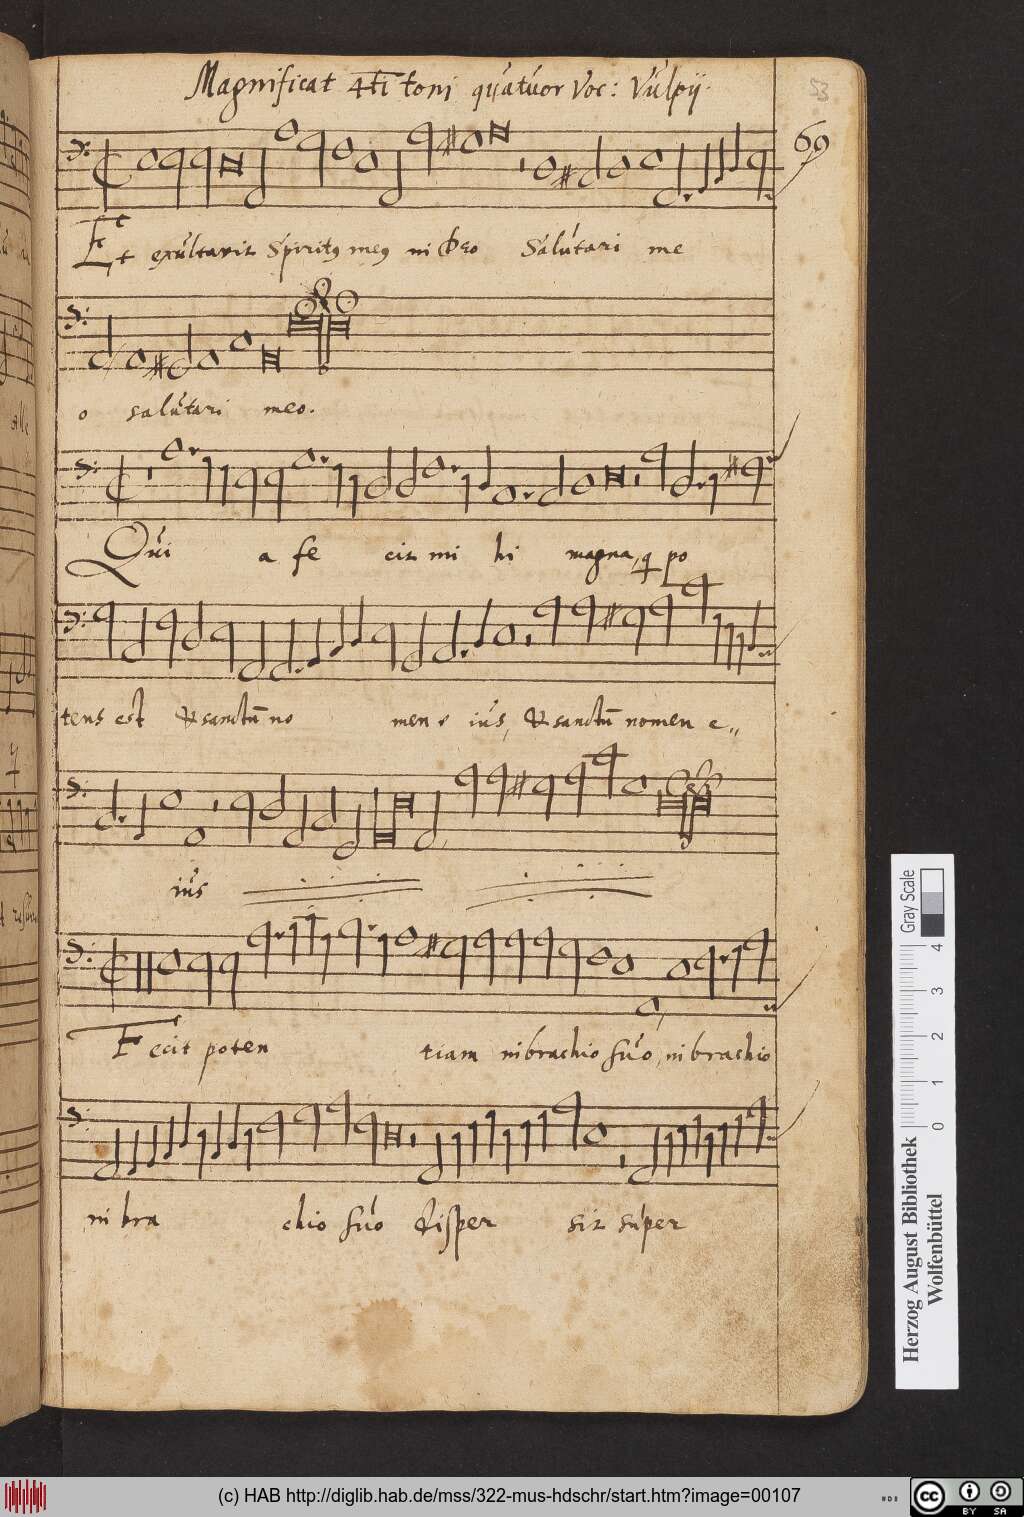 Magnificat 4ti toni quatuor Voc: Vulpij.
53
69
Et exultavit Spiritq meq in Deo Salutari me
o salutari meo.
Qui a fe cit mi hi magna, q po
tens est & sanctū no men e iûs, & sanctū nomen e,,
iûs
Fecit poten tiam in brachio suo, in brachio
in bra chio suo disper sit super
Gray Scale
4 3 2 1 0
Herzog August Bibliothek
Wolfenbüttel
(c) HAB http://diglib.hab.de/mss/322-mus-hdschr/start.htm?image=00107
cc BY SA